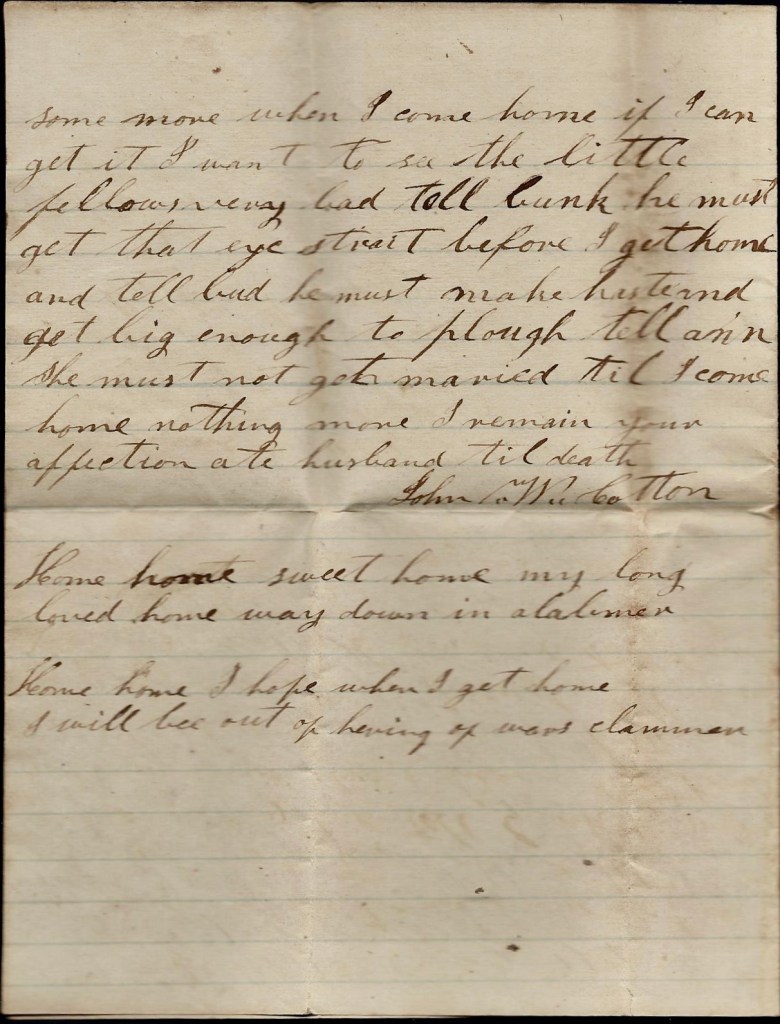 some more when I come home if I can
get it I want to see the little
fellows very bad tell bunk he must
get that eye strait before I get home
and tell bud he must make haste and
get big enough to plough tell ann
she must not get maried til I come
home nothing more I remain your
affection ate husband til death
John W Cotton
Home home sweet home my long
loved home way down in alabmer
Home home I hope when I get home
I will bee out of hering of wars clammer